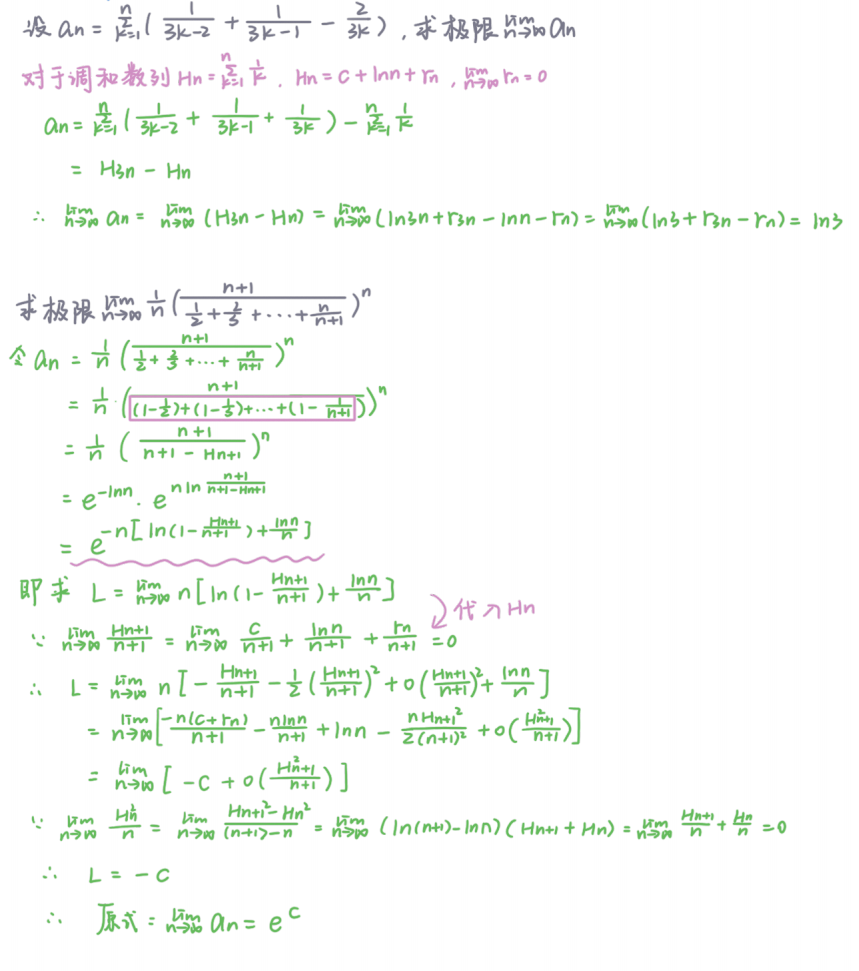 设 an = Σ_{k=1}^{n} ( 1/(3k-2) + 1/(3k-1) - 2/(3k) ) , 求极限 lim_{n→∞} an
对于调和数列 Hn = Σ_{k=1}^{n} 1/k . Hn = C + lnn + rn , lim_{n→∞} rn = 0
an = Σ_{k=1}^{n} ( 1/(3k-2) + 1/(3k-1) + 1/(3k) ) - Σ_{k=1}^{n} 1/k
= H3n - Hn
∴ lim_{n→∞} an = lim_{n→∞} (H3n - Hn) = lim_{n→∞} (ln3n + r3n - lnn - rn) = lim_{n→∞} (ln3 + r3n - rn) = ln3
求极限 lim_{n→∞} 1/n ( (n+1)/(1/2 + 2/3 + ... + n/(n+1)) )^n
令 an = 1/n ( (n+1)/(1/2 + 2/3 + ... + n/(n+1)) )^n
= 1/n · ( (n+1)/((1-1/2)+(1-1/3)+...+(1-1/(n+1))) )^n
= 1/n ( (n+1)/(n+1 - Hn+1) )^n
= e^{-lnn} · e^{n ln (n+1)/(n+1-Hn+1)}
= e^{-n[ln(1 - Hn+1/(n+1)) + lnn/n]}
即求 L = lim_{n→∞} n[ln(1 - Hn+1/(n+1)) + lnn/n]
代入Hn
∵ lim_{n→∞} Hn+1/(n+1) = lim_{n→∞} C/(n+1) + lnn/(n+1) + rn/(n+1) = 0
∴ L = lim_{n→∞} n[ - Hn+1/(n+1) - 1/2 (Hn+1/(n+1))^2 + o(Hn+1/(n+1))^2 + lnn/n ]
= lim_{n→∞} [ -n(C+rn)/(n+1) - nlnn/(n+1) + lnn - nHn+1^2/(2(n+1)^2) + o(H^2n+1/(n+1)) ]
= lim_{n→∞} [ -C + o(H^2n+1/(n+1)) ]
∵ lim_{n→∞} H^2n/n = lim_{n→∞} (Hn+1^2 - Hn^2)/((n+1)-n) = lim_{n→∞} (ln(n+1)-lnn)(Hn+1 + Hn) = lim_{n→∞} Hn+1/n + Hn/n = 0
∴ L = -C
∴ 原式 = lim_{n→∞} an = e^C